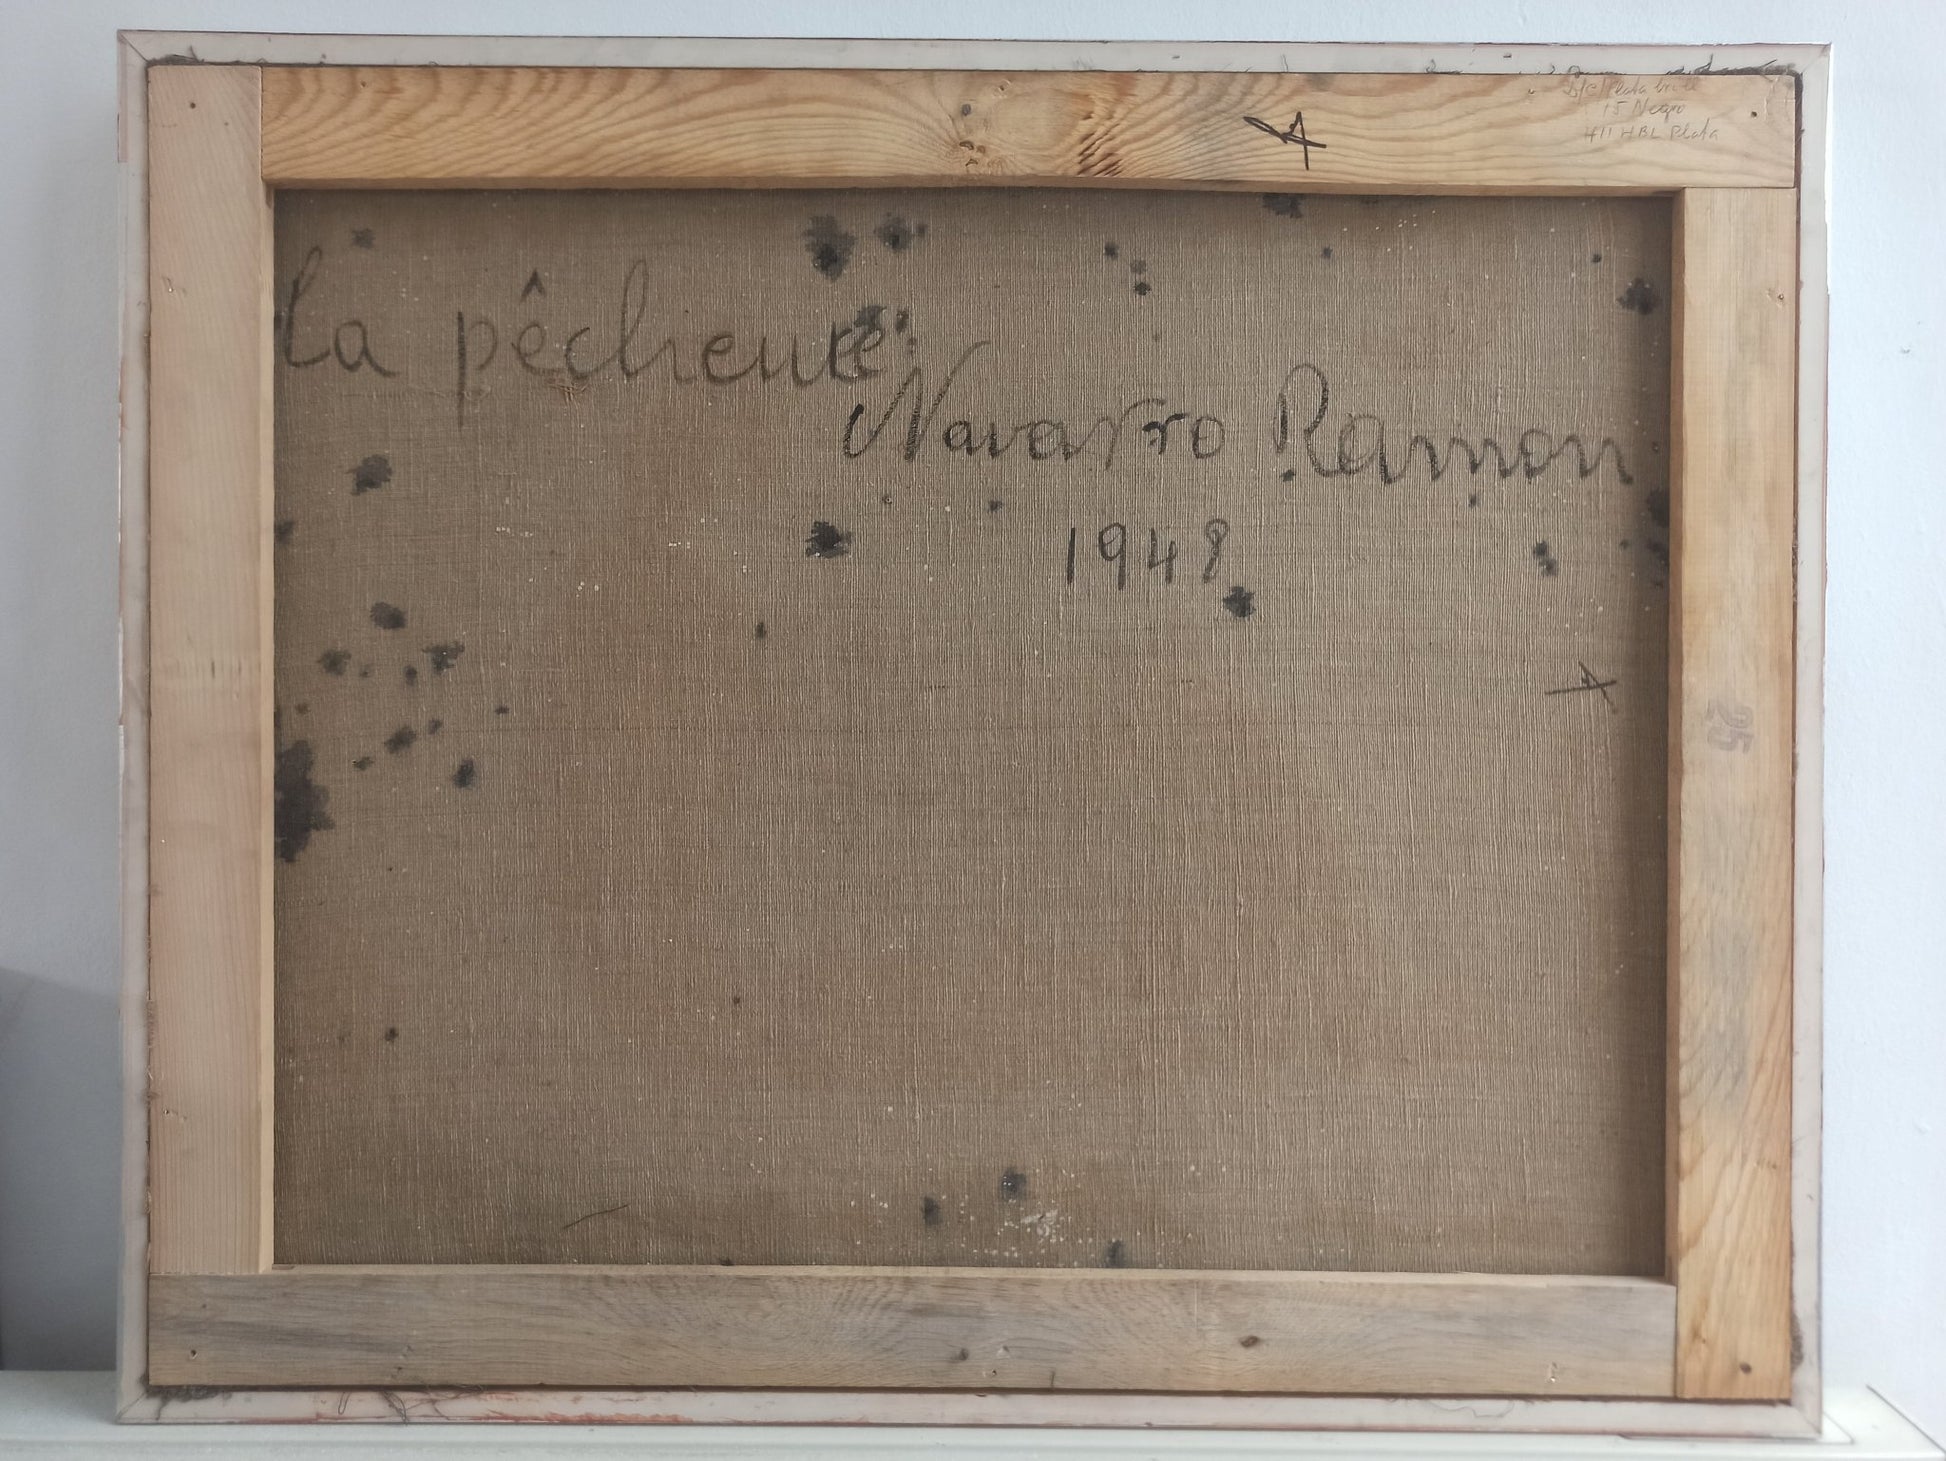 15 Negro
411 HBL Plata
La pêcheuse
Navarro Ramon
1948
25